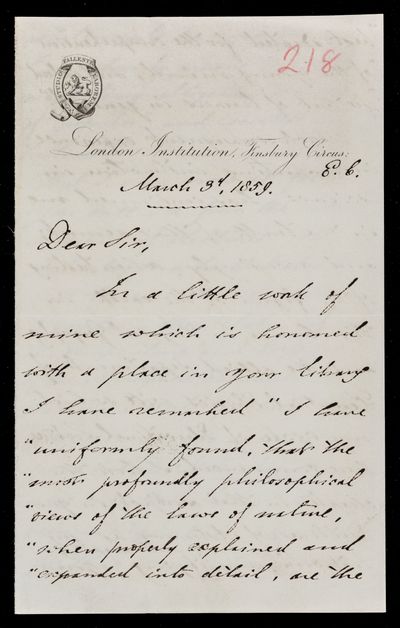 218
London Institution, Finsbury Circus:
E. C.
March 3d, 1859.
Dear Sir,
In a little work of
mine which is honored
with a place in your library
I have remarked "I have
"uniformly found, that the
"most profoundly philosophical
"views of the laws of nature,
"when properly explained and
"expanded into detail, are the